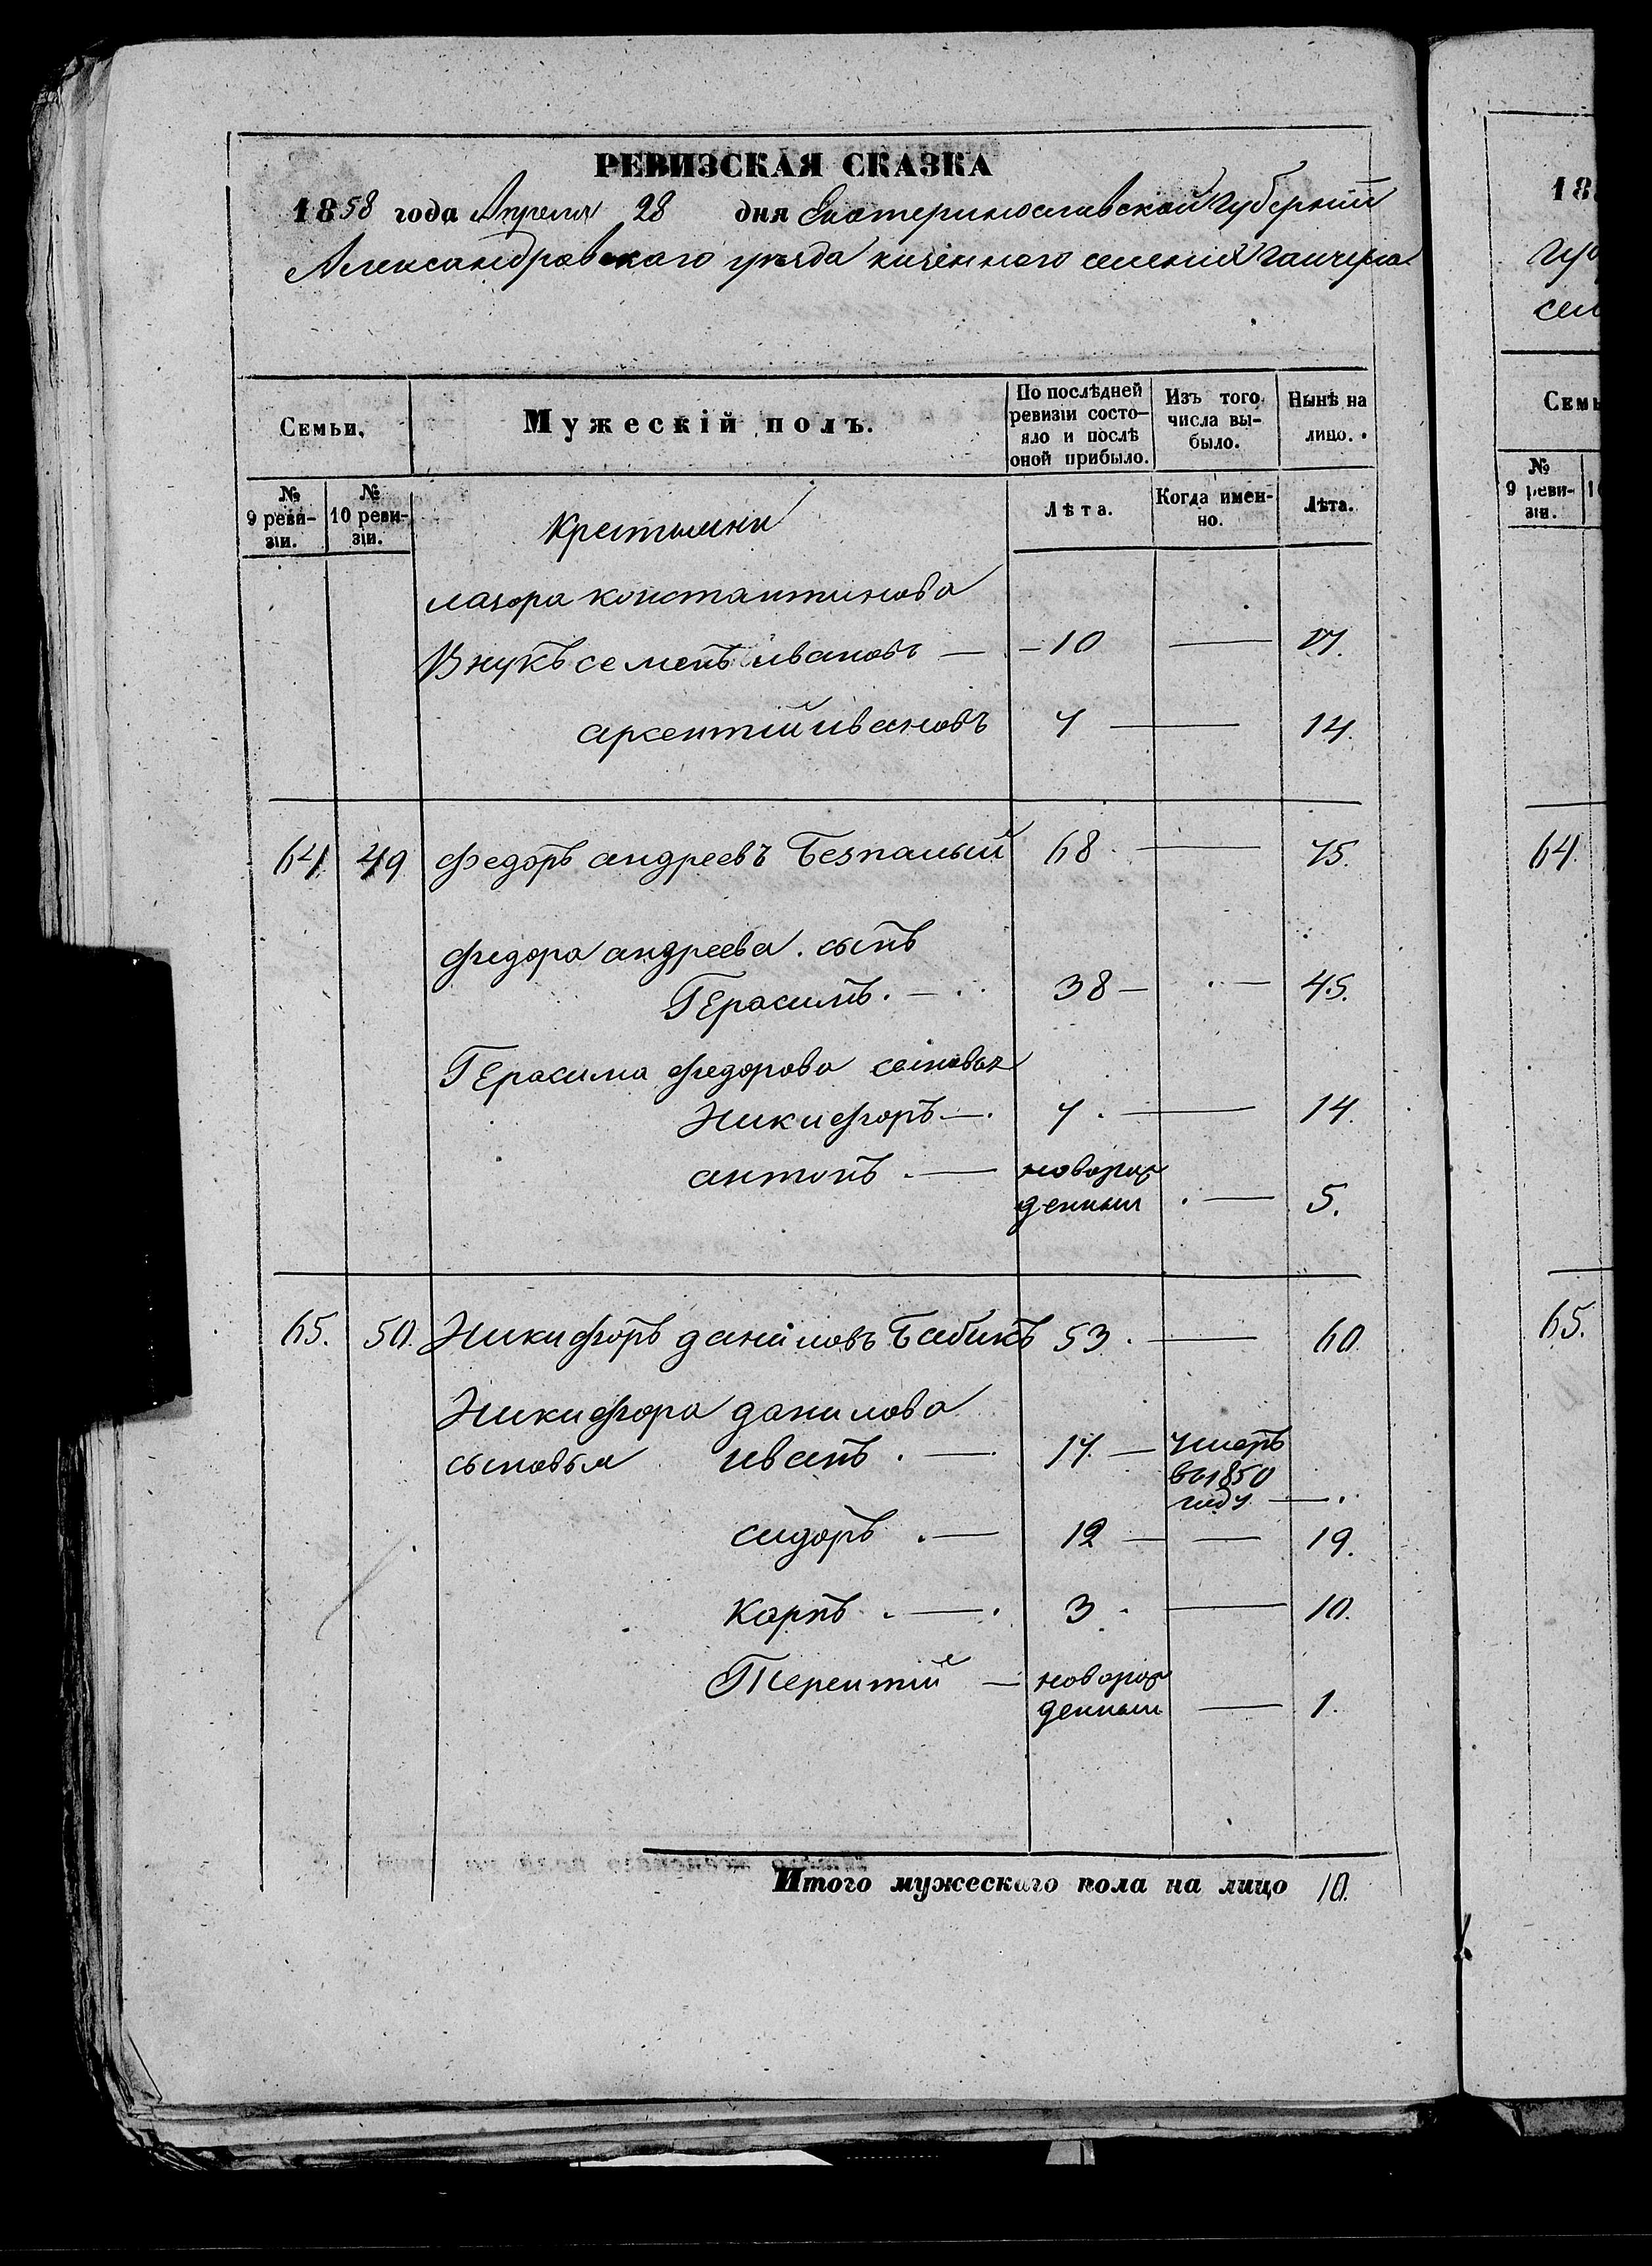 РЕВИЗСКАЯ СКАЗКА
1858 года Апреля 28 дня Екатеринославской губерніи
Александровскаго уѣзда казенного селенія Гайчура
Семьи.
Мужескій полъ.
По послѣдней ревизіи состояло и послѣ оной прибыло.
Изъ того числа выбыло.
Нынѣ на лицо.
№ 9 ревизіи.
№ 10 ревизіи.
Крестьяни
Лѣта.
Когда именно.
Лѣта.
лазора константинова
Внукъ семенъ ивановъ — 10 — 17.
арсентій ивановъ 7 — 14.
64. 49 Федоръ андреевъ Безпалый 68 — 75.
федора андреева. сынъ
Герасимъ. — 38 — 45.
Герасима федорова сыновья
Никифоръ — 7. — 14.
антонъ. — новорож
денный — 5.
65. 50. Никифоръ даниловъ Бабикъ 53. — 60.
Никифора данилова
сыновья иванъ. — 17. — Умеръ
въ 1850
году —
сидоръ. — 12 — 19.
Карпъ. — 3. — 10.
Терентій — новорож
денный — 1.
Итого мужескаго пола на лицо 10.
18
гу
сел
Семь
№ 9 ревизіи.
1
64.
65.